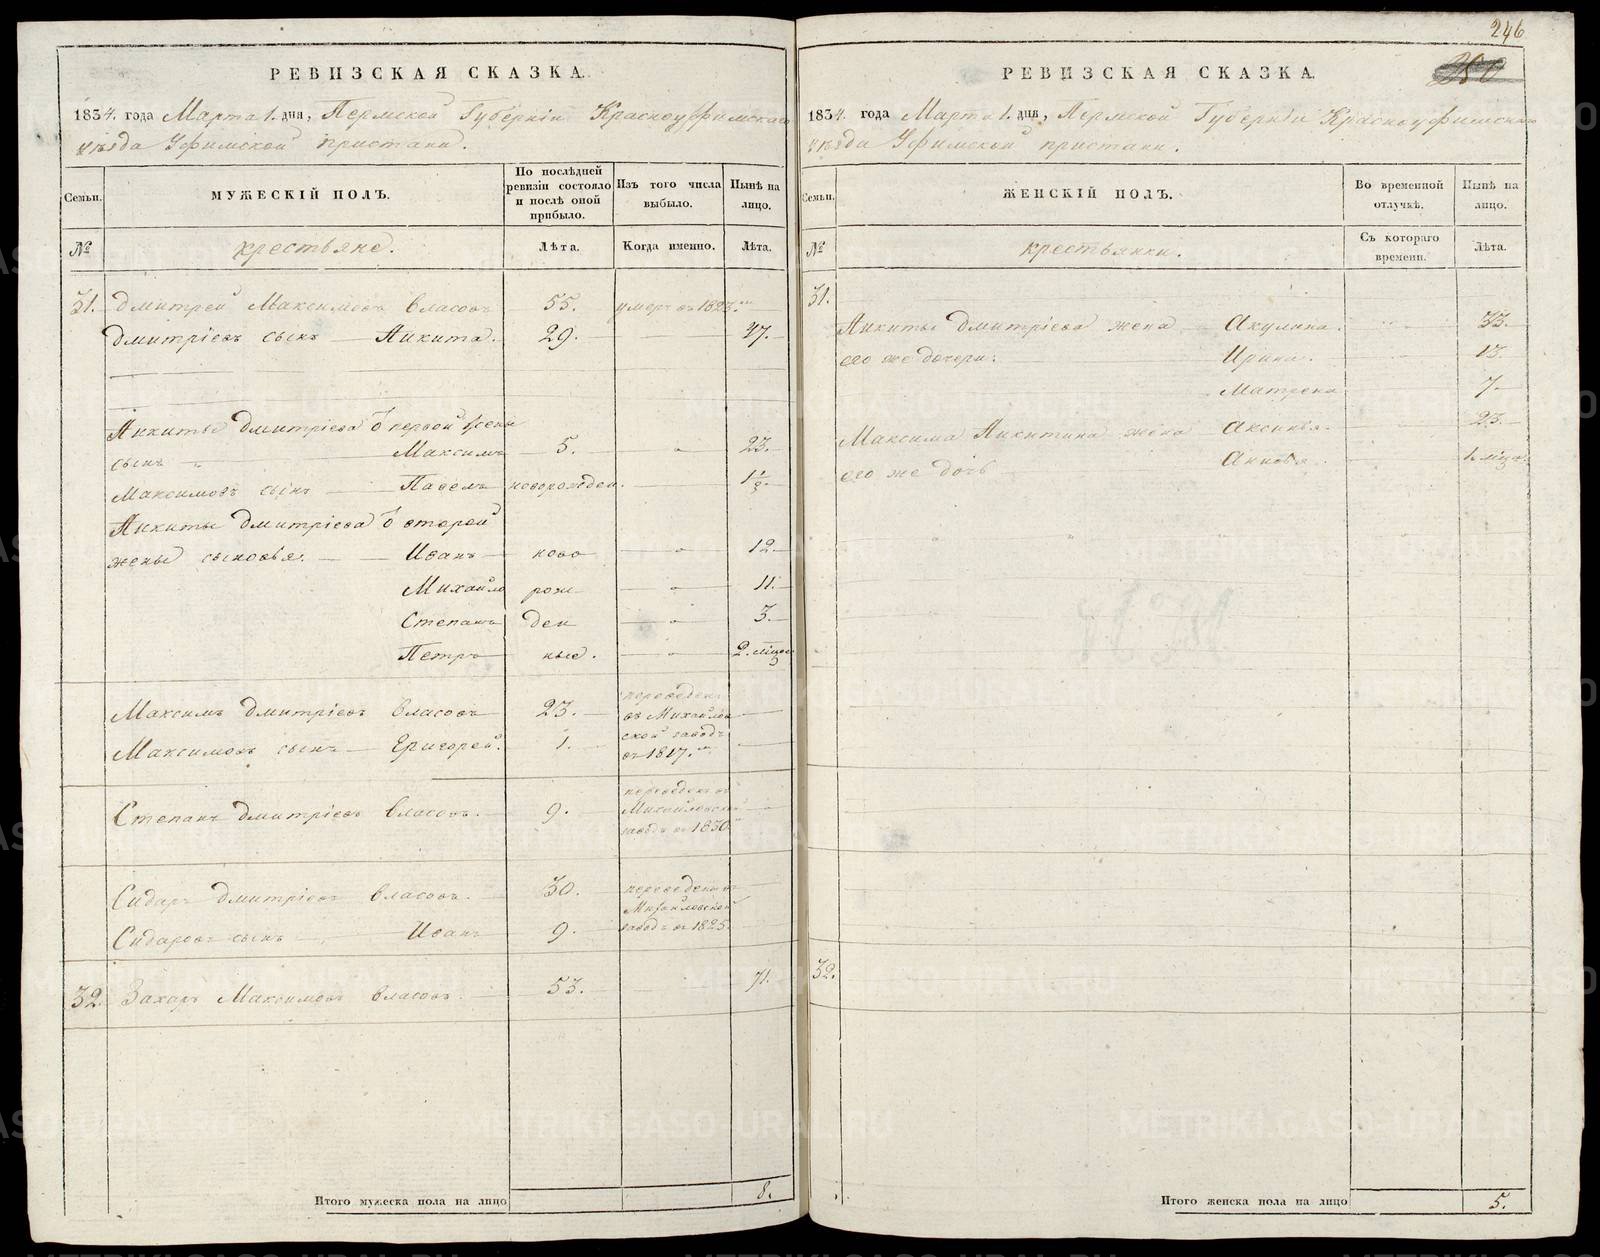 246
РЕВИЗСКАЯ СКАЗКА.
1834. года Марта 1. дня, Пермской Губерніи Красноуфимскаго
уѣзда Уфимской пристани.
Семьи.
МУЖЕСКІЙ ПОЛЪ.
По послѣдней ревизіи состояло и послѣ оной прибыло.
Изъ того числа выбыло.
Нынѣ на лицо.
№
крестьяне.
Лѣта.
Когда именно.
Лѣта.
31. Дмитрей Максимовъ Власовъ 55. умеръ въ 1823.
Дмитріевъ сынъ Никита. 29. 47.
Никиты Дмитріева о первой жены
сынъ Максимъ 5. 23.
Максимовъ сынъ Павелъ новорожден. 1½.
Никиты Дмитріева о второй
жены сыновья. Иванъ ново 12.
Михайло рож 11.
Степанъ ден 3.
Петръ ные. 2. мѣцо
Максимъ Дмитріевъ Власовъ 23. переведены
въ Михайлов
Максимовъ сынъ Григорей. 1. ской заводъ
въ 1817.
Степанъ Дмитріевъ Власовъ. 9. переведенъ въ
Михайловской
заводъ въ 1830.
Сидаръ Дмитріевъ Власовъ. 30. переведены въ
Михайловской
Сидаровъ сынъ Иванъ 9. заводъ въ 1825.
32. Захаръ Максимовъ Власовъ. 53. 71.
Итого мужеска пола на лицо 8.
РЕВИЗСКАЯ СКАЗКА.
1834. года Марта 1. дня, Пермской Губерніи Красноуфимскаго
уѣзда Уфимской пристани.
Семьи.
ЖЕНСКІЙ ПОЛЪ.
Во временной отлучкѣ.
Нынѣ на лицо.
№
крестьянки.
Съ котораго времени.
Лѣта.
31.
Никиты Дмитріева жена Акулина. 33.
его же дочери: Ирина. 13.
Матрена 7.
Максима Никитина жена Аксинья. 23.
его же дочь 1. мѣцъ.
32.
Итого женска пола на лицо 5.
METRIKI.GASO-URAL.RU